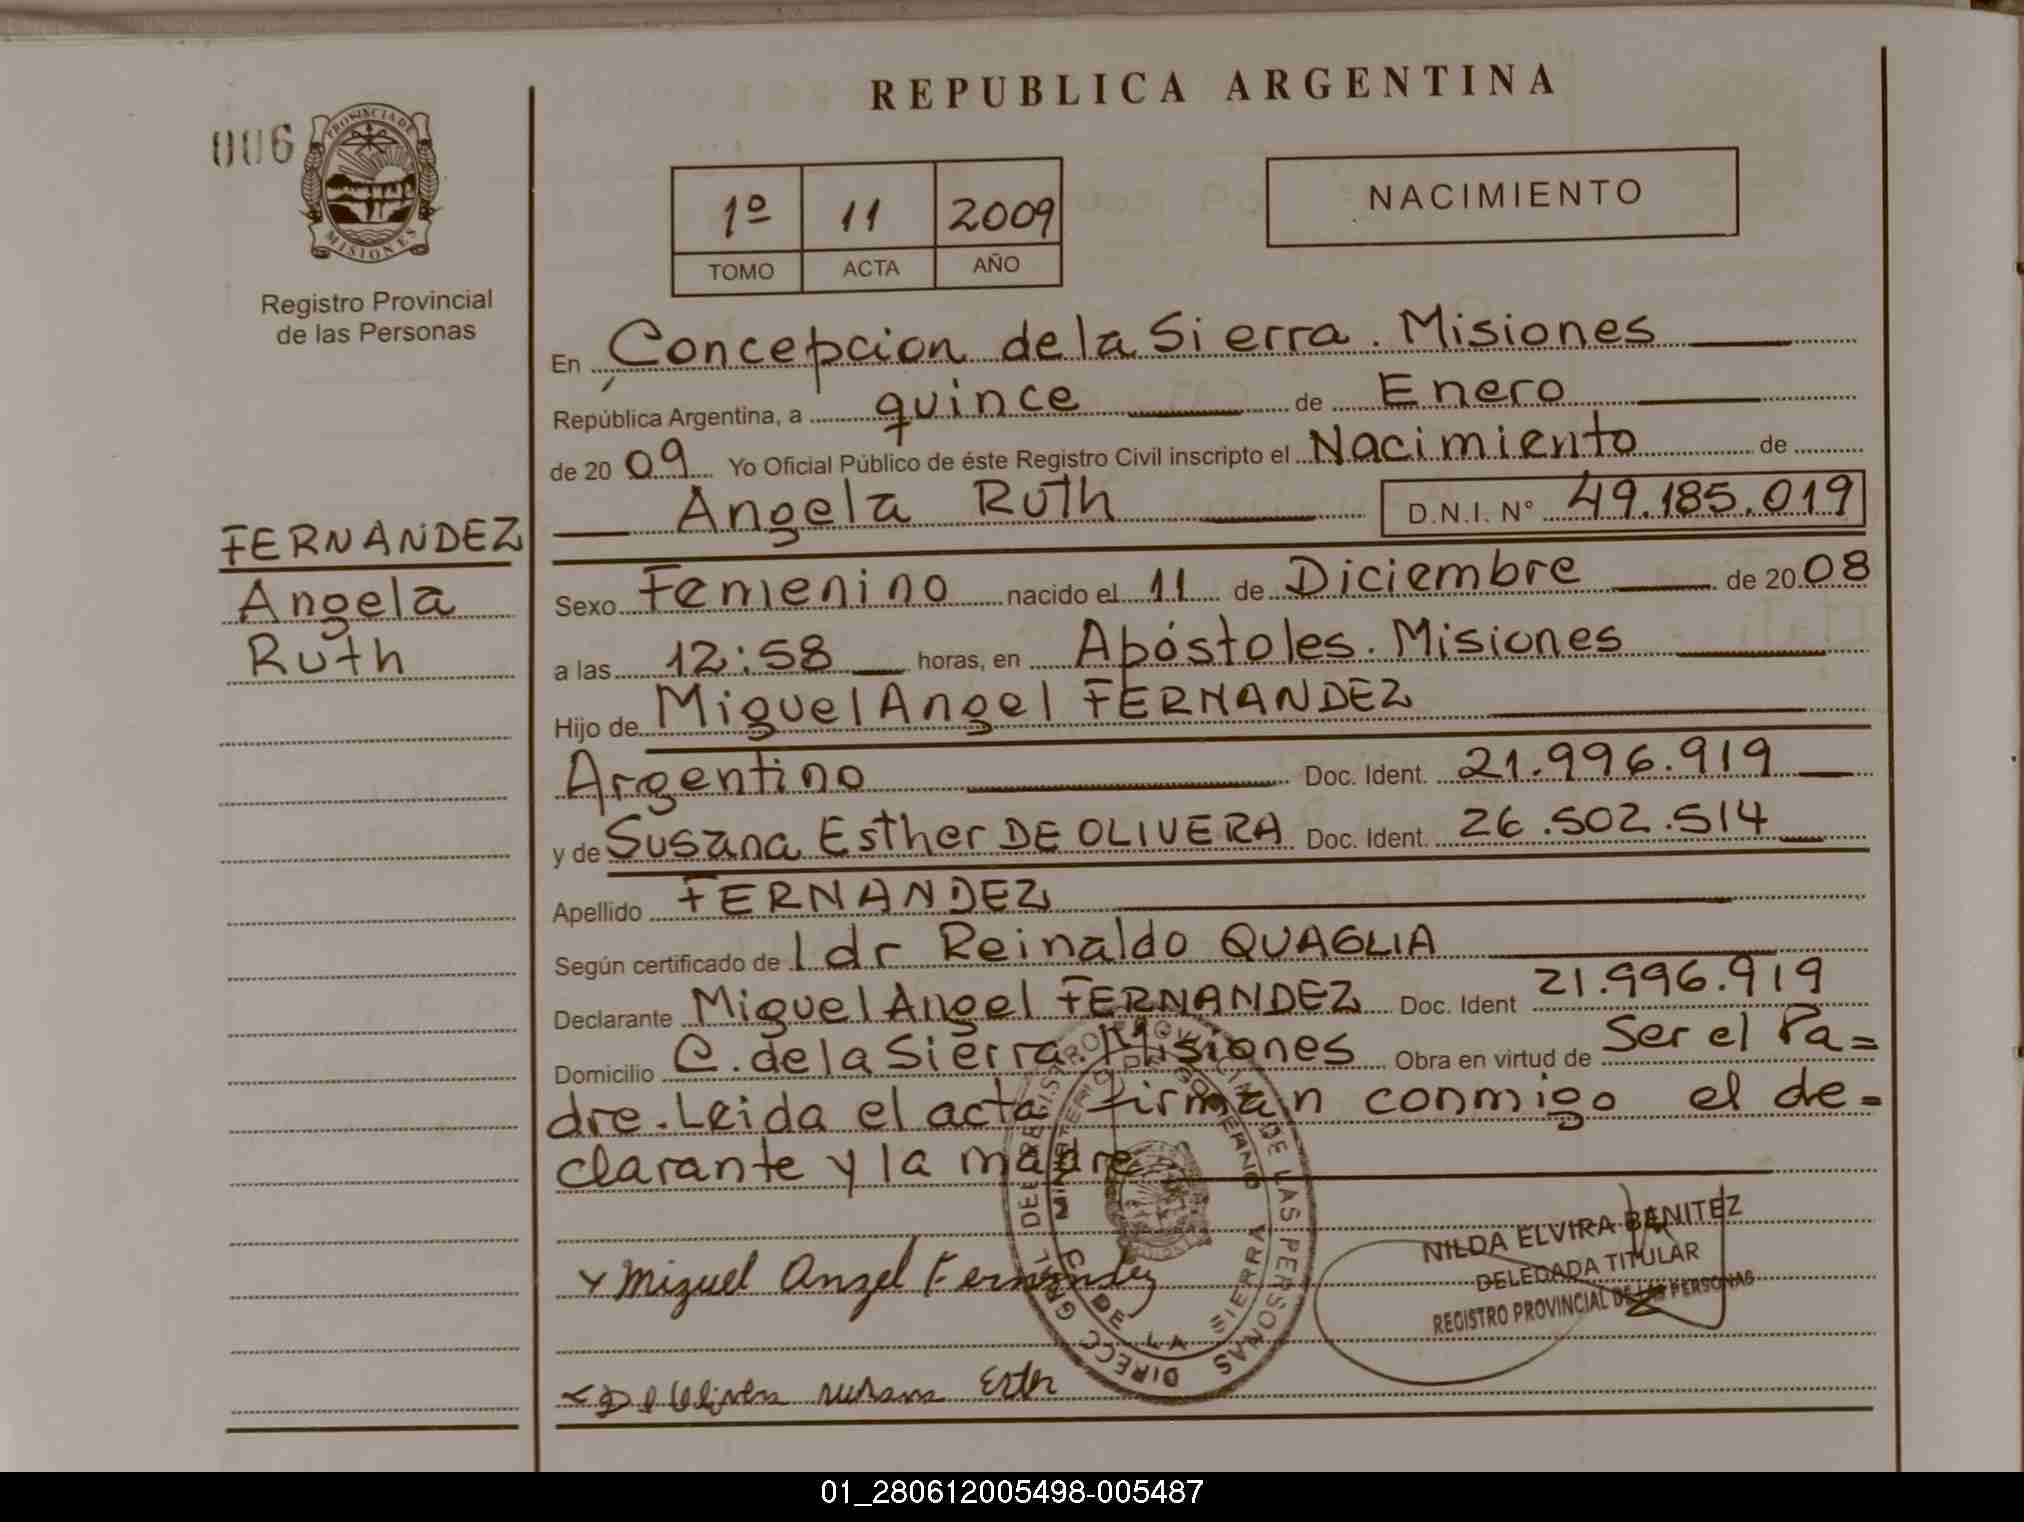 REPUBLICA ARGENTINA
006
PROVINCIA DE
MISIONES
Registro Provincial
de las Personas
1º 11 2009
TOMO ACTA AÑO
NACIMIENTO
En Concepcion de la Sierra. Misiones
República Argentina, a quince de Enero
de 2009 Yo Oficial Público de éste Registro Civil inscripto el Nacimiento de
Angela Ruth D.N.I. Nº 49.185.019
FERNANDEZ
Angela
Ruth
Sexo Femenino nacido el 11 de Diciembre de 2008
a las 12:58 horas, en Apóstoles. Misiones
Hijo de Miguel Angel FERNANDEZ
Argentino Doc. Ident. 21.996.919
y de Susana Esther DE OLIVERA Doc. Ident. 26.502.514
Apellido FERNANDEZ
Según certificado de l dr Reinaldo QUAGLIA
Declarante Miguel Angel FERNANDEZ Doc. Ident 21.996.919
Domicilio C. de la Sierra. Misiones Obra en virtud de Ser el Pa=
dre. Leida el acta firman conmigo el de=
clarante y la madre
DIRECC GRAL DEL REGISTRO PROVINCIAL DE LAS PERSONAS
MINISTERIO DE GOBIERNO
C. DE LA SIERRA
NILDA ELVIRA BENITEZ
DELEGADA TITULAR
REGISTRO PROVINCIAL DE LAS PERSONAS
Miguel Angel Fernandez
01_280612005498-005487